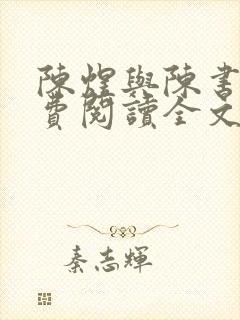 陳煌與陳書
費閱讀全文
秦志輝